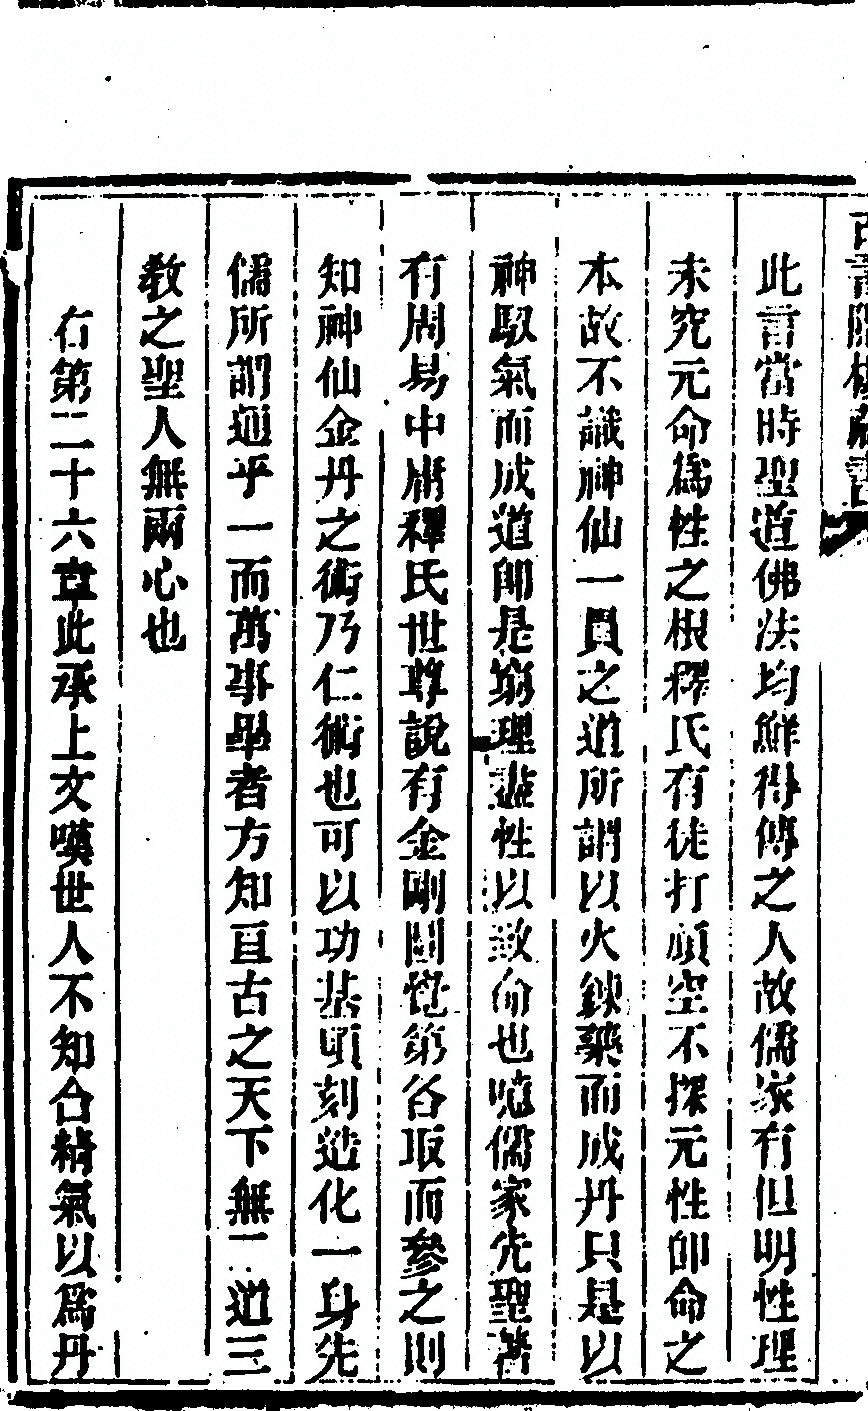 古書隱樓藏書
此言當時聖道佛法均鮮得傳之人故儒家有但明性理
未究元命爲性之根釋氏有徒打頑空不探元性卽命之
本故不識神仙一貫之道所謂以火鍊藥而成丹只是以
神馭氣而成道卽是窮理盡性以致命也噫儒家先聖著
有周易中庸釋氏世尊說有金剛圓覺第各取而參之則
知神仙金丹之術乃仁術也可以功基頃刻造化一身先
儒所謂通乎一而萬事畢者方知亘古之天下無二道三
教之聖人無兩心也
右第二十六章此承上文嘆世人不知合精氣以爲丹